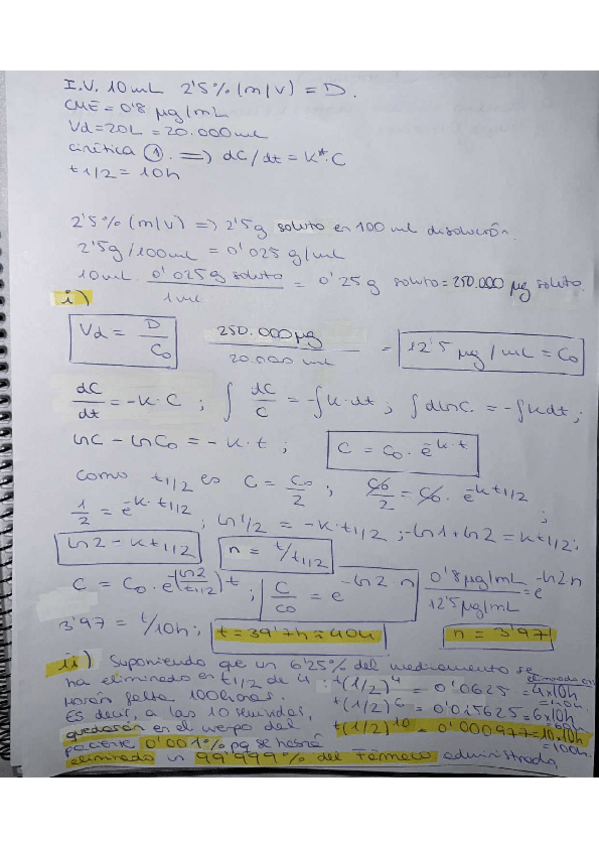 I.V. 10mL 2'5% (m/v) = D.
CME = 0'8 μg/mL
Vd = 20L = 20.000 mL
cinética ①. => dC/dt = K*·C
t1/2 = 10h
2'5% (m/v) => 2'5g soluto en 100 ml disolución.
2'5g/100mL = 0'025 g/mL
10ml · 0'025g soluto / 1ml = 0'25g soluto = 250.000 μg soluto.
i)
Vd = D/C0   250.000μg / 20.000 mL = 12'5 μg/mL = C0
dC/dt = -K·C ; ∫ dC/C = -∫K·dt ; ∫dlnC. = -∫Kdt ;
lnC - lnC0 = -K·t ; C = C0 · e^-K·t
como t1/2 es C = C0/2 ; C0/2 = C0 · e^-Kt1/2 ;
1/2 = e^-K·t1/2 ; ln 1/2 = -K·t1/2 ; -ln1+ln2 = Kt1/2 ;
ln2 = Kt1/2   n = t/t1/2
C = C0 · e^-(ln2/t1/2)t ; C/C0 = e^-ln2·n   0'8μg/mL / 12'5μg/mL = e^-ln2n
3'97 = t/10h ; t = 39'7h ≈ 40h   n = 3'97
ii) Suponiendo que un 6'25% del medicamento se
ha eliminado en t1/2 de 4 : t(1/2)^4 = 0'0625 = 4x10h
horas falta 100horas.
t(1/2)^6 = 0'015625 = 6x10h
Es decir, a las 10 semividas,
quedarán en el cuerpo del t(1/2)^10 = 0'000977 = 10·10h
= 100h.
paciente 0'001% pq se habrá
eliminado un 99'999% del fármaco administrado.